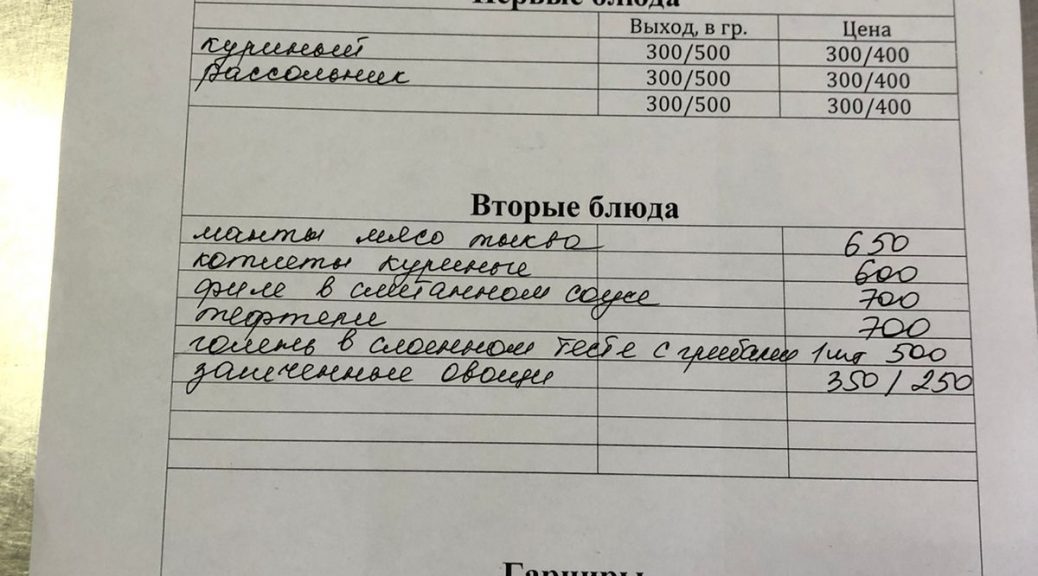 Первые блюда
Выход, в гр. Цена
куриный 300/500 300/400
рассольник 300/500 300/400
300/500 300/400
Вторые блюда
манты мясо тыква 650
котлеты куриные 600
филе в сметанном соусе 700
тефтели 700
голень в слоенном тесте с грибами 1 шт 500
запеченные овощи 350 / 250
Гарниры